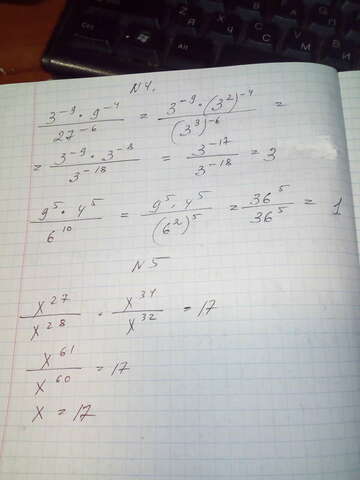 N4.
3^-9 · 9^-4 / 27^-6 = 3^-9 · (3^2)^-4 / (3^3)^-6 =
= 3^-9 · 3^-8 / 3^-18 = 3^-17 / 3^-18 = 3
9^5 · 4^5 / 6^10 = 9^5 · 4^5 / (6^2)^5 = 36^5 / 36^5 = 1
N5
x^27 / x^28 · x^34 / x^32 = 17
x^61 / x^60 = 17
x = 17